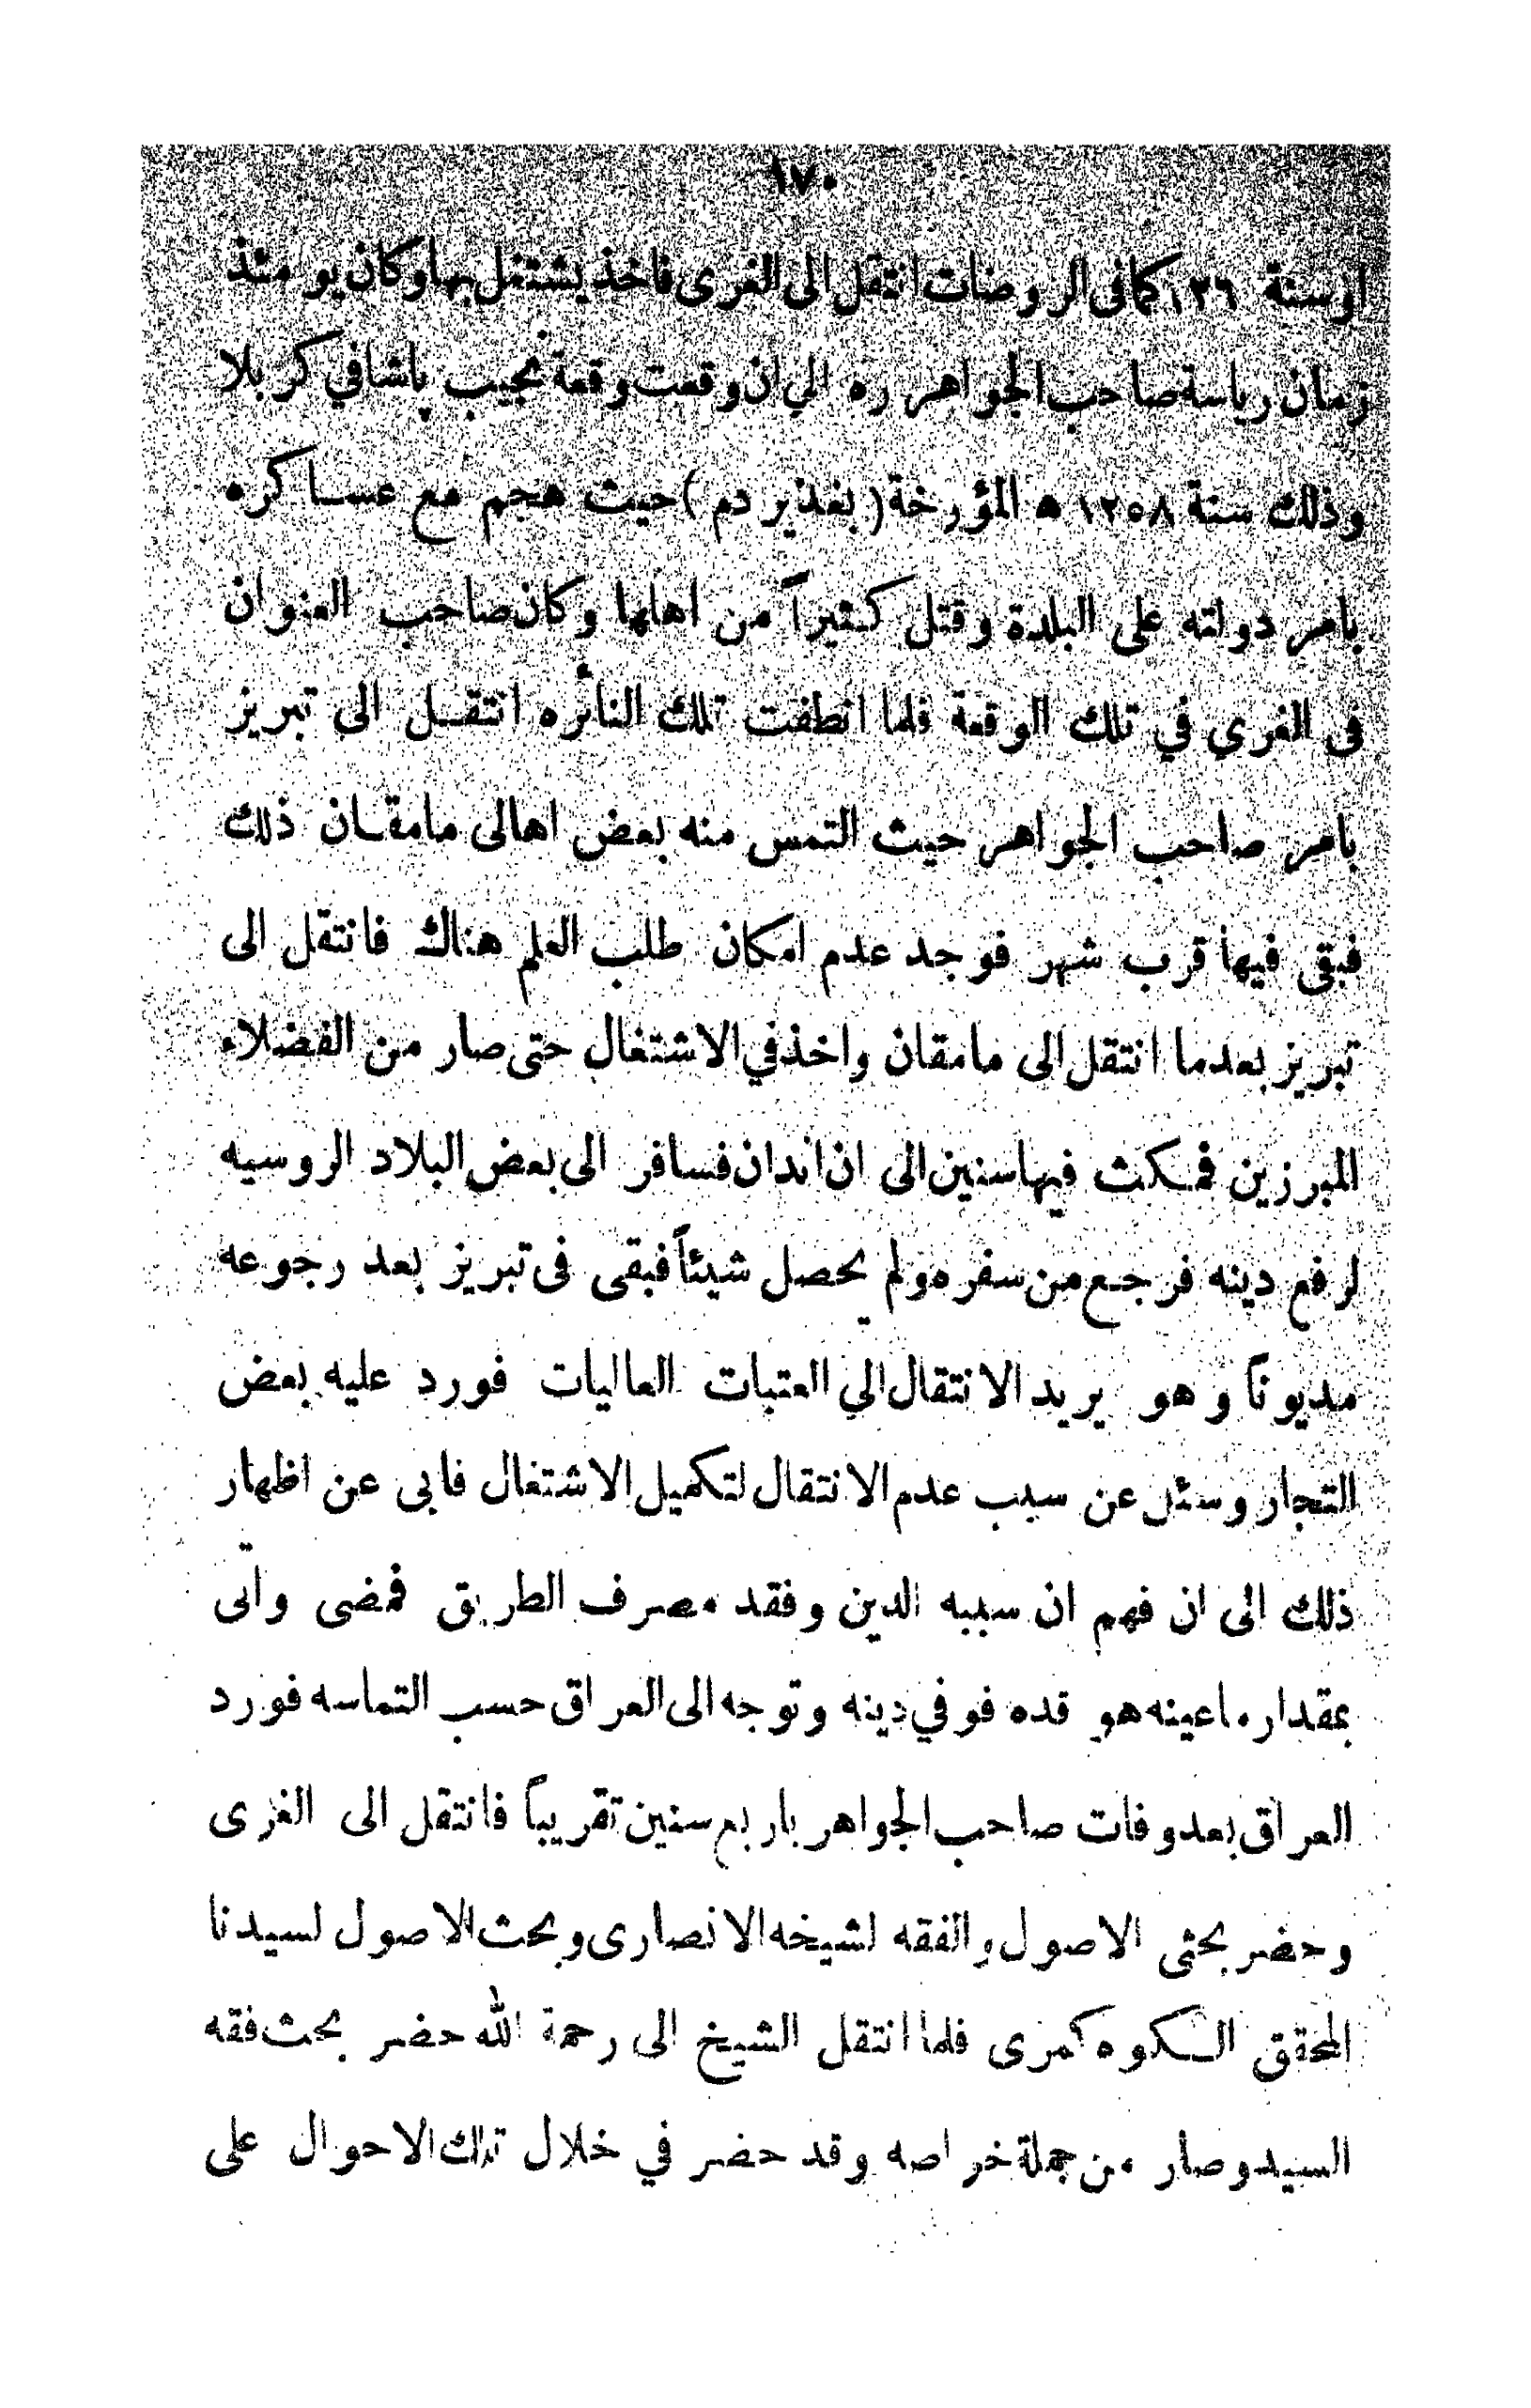 ١٧٠
او سنة ١٢٦ كما فى الروضات انتقل الى الغرى فاخذ يشتغل بها وكان يو مئذ
زمان رياسة صاحب الجواهر ره الي ان وقعت وقعة نجيب پاشا في كربلا
وذلك سنة ١٢٥٨ ه المؤرخة ( بغذير دم ) حيث هجم مع عساكره
بامر دولته على البلدة وقتل كثيراً من اهلها وكان صاحب العنوان
فى الغري في تلك الوقعة فلما انطفت تلك النائره انتقل الى تبريز
بامر صاحب الجواهر حيث التمس منه بعض اهالى مامقان ذلك
فبقى فيها قرب شهر فوجد عدم امكان طلب العلم هناك فانتقل الى
تبريز بعدما انتقل الى مامقان واخذ في الاشتغال حتى صار من الفضلاء
المبرزين فمكث فيها سنين الى ان اندان فسافر الى بعض البلاد الروسيه
لرفع دينه فرجع من سفره ولم يحصل شيئاً فبقى فى تبريز بعد رجوعه
مديوناً وهو يريد الانتقال الي العتبات العاليات فورد عليه بعض
التجار وسئل عن سبب عدم الانتقال لتكميل الاشتغال فابى عن اظهار
ذلك الى ان فهم ان سببه الدين وفقد مصرف الطريق فمضى واتى
بمقدار ماعينه هو قده فوفي دينه وتوجه الى العراق حسب التماسه فورد
العراق بعد وفات صاحب الجواهر باربع سنين تقريباً فانتقل الى الغرى
وحضر بحثى الاصول والفقه لشيخه الانصارى وبحث الاصول لسيدنا
المحقق الكوه كمرى فلما انتقل الشيخ الى رحمة الله حضر بحث فقه
السيد وصار من جملة خواصه وقد حضر في خلال تلك الاحوال على